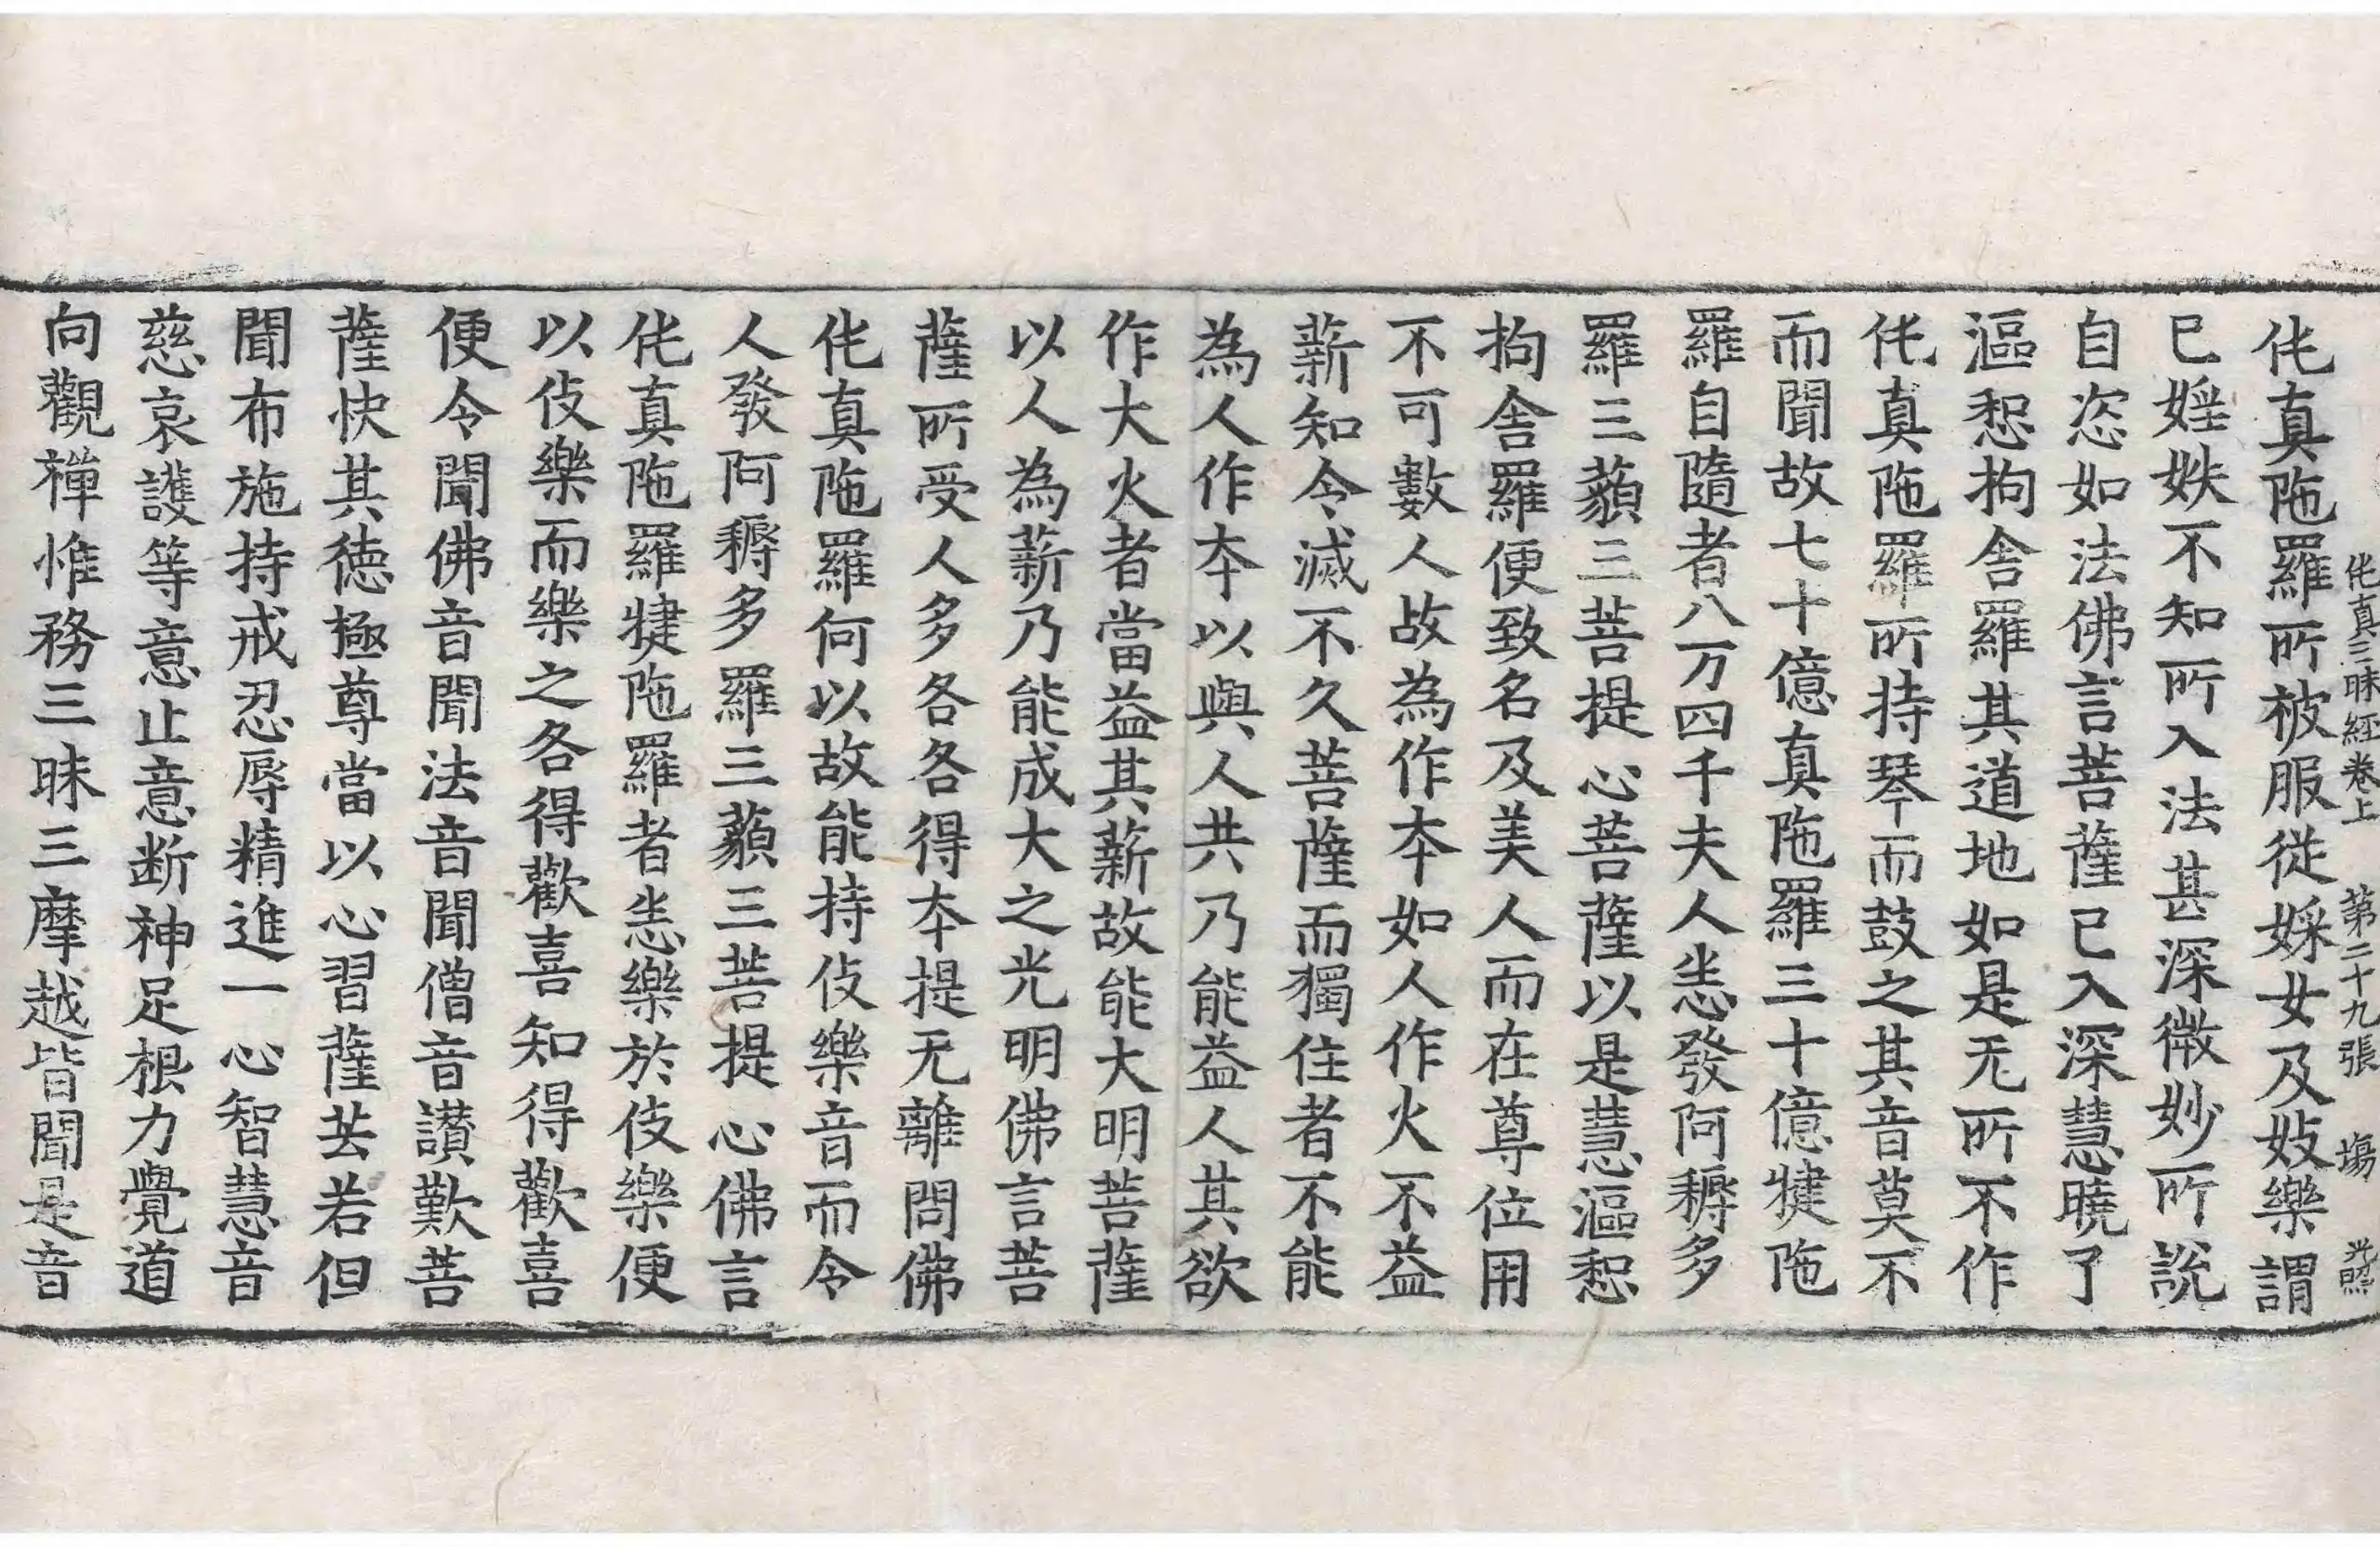 伅真三昧經卷上　第二十九張　塲　光熙
伅真陁羅所被服從婇女及妓樂謂
已婬妷不知所入法甚深微妙所說
自恣如法佛言菩薩已入深慧曉了
漚惒拘舍羅其道地如是无所不作
伅真陁羅所持琴而鼓之其音莫不
而聞故七十億真陁羅三十億揵陁
羅自隨者八万四千夫人恚發阿耨多
羅三藐三菩提心菩薩以是慧漚惒
拘舍羅便致名及美人而在尊位用
不可數人故為作夲如人作火不益
薪知令滅不久菩薩而獨住者不能
為人作夲以與人共乃能益人其欲
作大火者當益其薪故能大明菩薩
以人為薪乃能成大之光明佛言菩
薩所受人多各各得夲提无離問佛
伅真陁羅何以故能持伎樂音而令
人發阿耨多羅三藐三菩提心佛言
伅真陁羅揵陁羅者恚樂於伎樂便
以伎樂而樂之各得歡喜知得歡喜
便令聞佛音聞法音聞僧音讃歎菩
薩快其德極尊當以心習薩芸若但
聞布施持戒忍辱精進一心智慧音
慈哀護等意止意断神足根力覺道
向觀禪惟務三昧三摩越皆聞是音